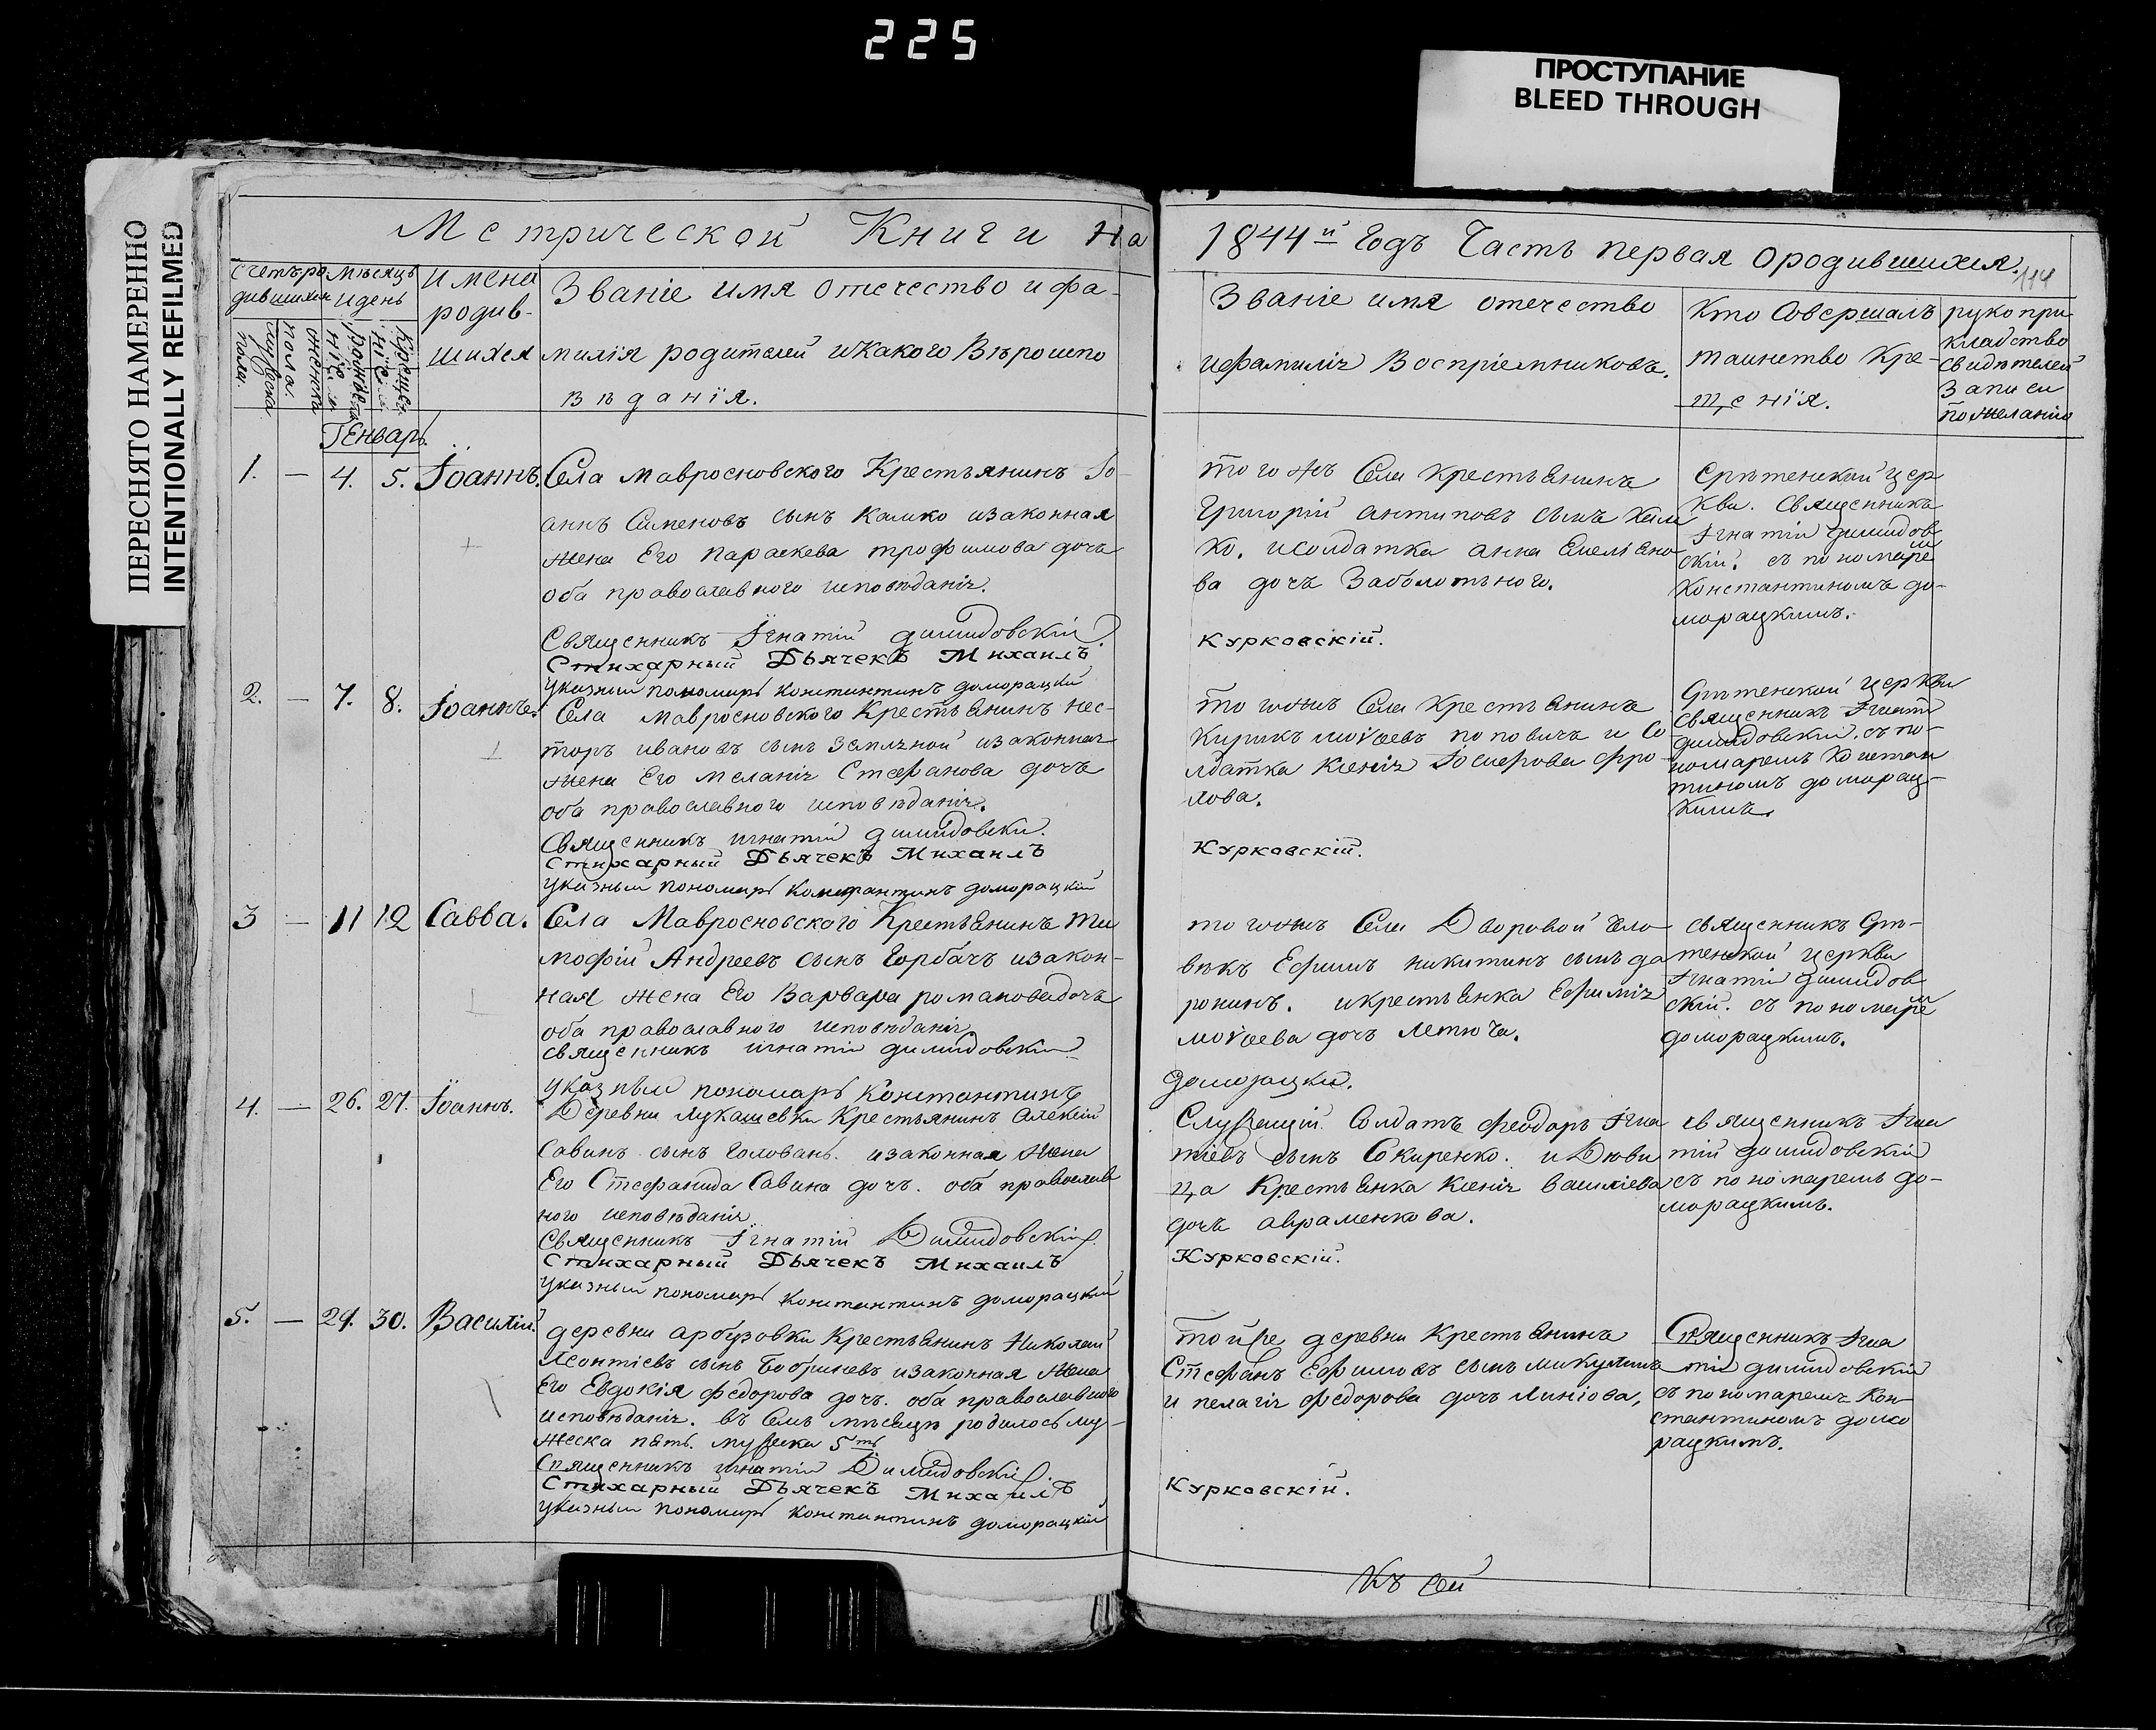 225
ПРОСТУПАНИЕ
BLEED THROUGH
ПЕРЕСНЯТО НАМЕРЕННО
INTENTIONALLY REFILMED
Метрической Книги на
1844й годъ Часть первая ородившихся.
114
Счетъ ро
дившихся
Мѣсяцъ
и день
Имена
родив-
шихся
Званіе имя отечество и фа-
милія родителей и какого Вѣроиспо
вѣданія.
Званіе имя отечество
ифамиліи Воспріемниковъ.
Кто Совершалъ
таинство Кре-
щенія.
рукопри
кладство
свидѣтелей
записи
по желанію
Генварь
1. — 4. 5. Іоаннъ.
Села Мавросновского Крестьянинъ Іо-
аннъ Сименовъ сынъ Калико изаконная
жена Его Параскева трофимова дочь
оба православного исповѣданія.
Священникъ Ігнатій димидовскій
Стихарный Дьячекъ Михаилъ
указный пономарь константинъ доморацкій
того жъ Села крестьянинъ
Григорій антиповъ сынъ
ко. исолдатка анна Емельяно
ва дочь Заболотьного.
Курковскій.
Срѣтенской цер
кви. Священникъ
Ігнатій димидов
скій. съ пономаремъ
Константиномъ до-
морацкимъ.
2. — 7. 8. Іоаннъ.
Села Мавросновского Крестьянинъ нес-
торъ ивановъ сынъ Запльной изаконная
жена Его меланія Стефанова дочь
оба православного исповѣданія.
Священникъ игнатій димидовски.
Стихарный Дьячекъ Михаилъ
указный пономарь константинъ доморацкій
того жъ Села Крестьянинъ
Кирикъ моѵсеевъ поповичъ и Со
лдатка ксенія Іосифова фро
лова.
Курковскій.
Срѣтенской церкви
священникъ Ігнатій
димидовскій. съ по-
номаремъ Констан
тиномъ доморац-
кимъ.
3 — 11 12 Савва.
Села Мавросновского Крестьянинъ Ти
мофій Андреевъ сынъ Горбачъ изакон-
ная жена Его Варвара романова дочь
оба православного исповѣданія
священникъ игнатій димидовскій
указный пономарь Константинъ
того жъ Села Дворовой чело
вѣкъ Ефимъ никитинъ сынъ да
ронинъ. икрестьянка Ефимія
моѵсеева дочь Летюча.
доморацки.
священникъ Срѣ-
тенской церкви
Ігнатій димидов
скій. съ пономаремъ
доморацкимъ.
4. — 26. 27. Іоаннъ.
Деревни Лукашевки Крестьянинъ алексій
Савинъ сынъ Головань. изаконная жена
Его Стефанида Савина дочь. оба православ
ного исповѣданія
Священникъ Ігнатій Димидовскій.
Стихарный Дьячекъ Михаилъ
указный пономарь константинъ доморацкій
Служащій Солдатъ феодоръ Ігна
тіевъ сынъ Сокиренко. и Дѣви
ца Крестьянка ксенія василіева
дочь авраменкова.
Курковскій.
священникъ Ігна
тій димидовскій
съ пономаремъ до-
морацкимъ.
5. — 29. 30. Василій.
деревни арбузовки Крестьянинъ Николай
Леонтіевъ сынъ Бобриневъ изаконная жена
Его Евдокія федорова дочь. оба православного
исповѣданія. въ семъ мѣсяцѣ родилось му-
жеска пять. мужеска 5ть
Священникъ игнатій Димидовскій.
Стихарный Дьячекъ Михаилъ
указный пономарь константинъ доморацкій
той же деревни Крестьянинъ
Стефанъ Ефимовъ сынъ микулинъ
и пелагія федорова дочь Линіова,
Курковскій.
Священникъ Ігна
тій димидовскій
съ пономаремъ Кон-
стантиномъ домо
рацкимъ.
Къ сей